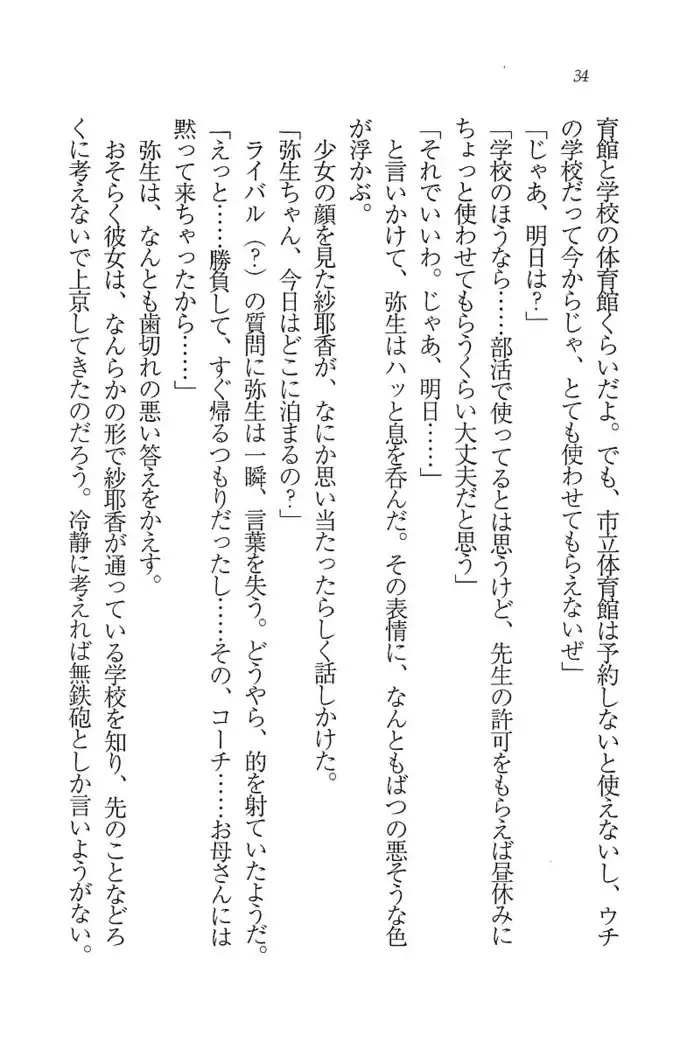 34
育館と学校の体育館くらいだよ。でも、市立体育館は予約しないと使えないし、ウチ
の学校だって今からじゃ、とても使わせてもらえないぜ」
「じゃあ、明日は？」
「学校のほうなら……部活で使ってるとは思うけど、先生の許可をもらえば昼休みに
ちょっと使わせてもらうくらい大丈夫だと思う」
「それでいいわ。じゃあ、明日……」
と言いかけて、弥生はハッと息を呑んだ。その表情に、なんともばつの悪そうな色
が浮かぶ。
少女の顔を見た紗耶香が、なにか思い当たったらしく話しかけた。
「弥生ちゃん、今日はどこに泊まるの？」
ライバル（？）の質問に弥生は一瞬、言葉を失う。どうやら、的を射ていたようだ。
「えっと……勝負して、すぐ帰るつもりだったし……その、コーチ……お母さんには
黙って来ちゃったから……」
弥生は、なんとも歯切れの悪い答えをかえす。
おそらく彼女は、なんらかの形で紗耶香が通っている学校を知り、先のことなどろ
くに考えないで上京してきたのだろう。冷静に考えれば無鉄砲としか言いようがない。